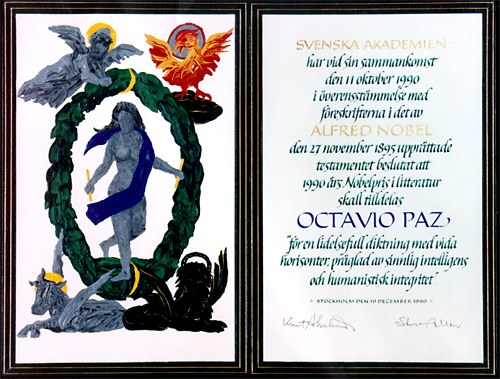 SVENSKA AKADEMIEN
har vid sin sammankomst
den 11 oktober 1990
i överensstämmelse med
föreskrifterna i det av
ALFRED NOBEL
den 27 november 1895 upprättade
testamentet beslutat att
1990 års Nobelpris i litteratur
skall tilldelas
OCTAVIO PAZ
"för en lidelsefull diktning med vida
horisonter, präglad av sinnlig intelligens
och humanistisk integritet"
STOCKHOLM DEN 10 DECEMBER 1990